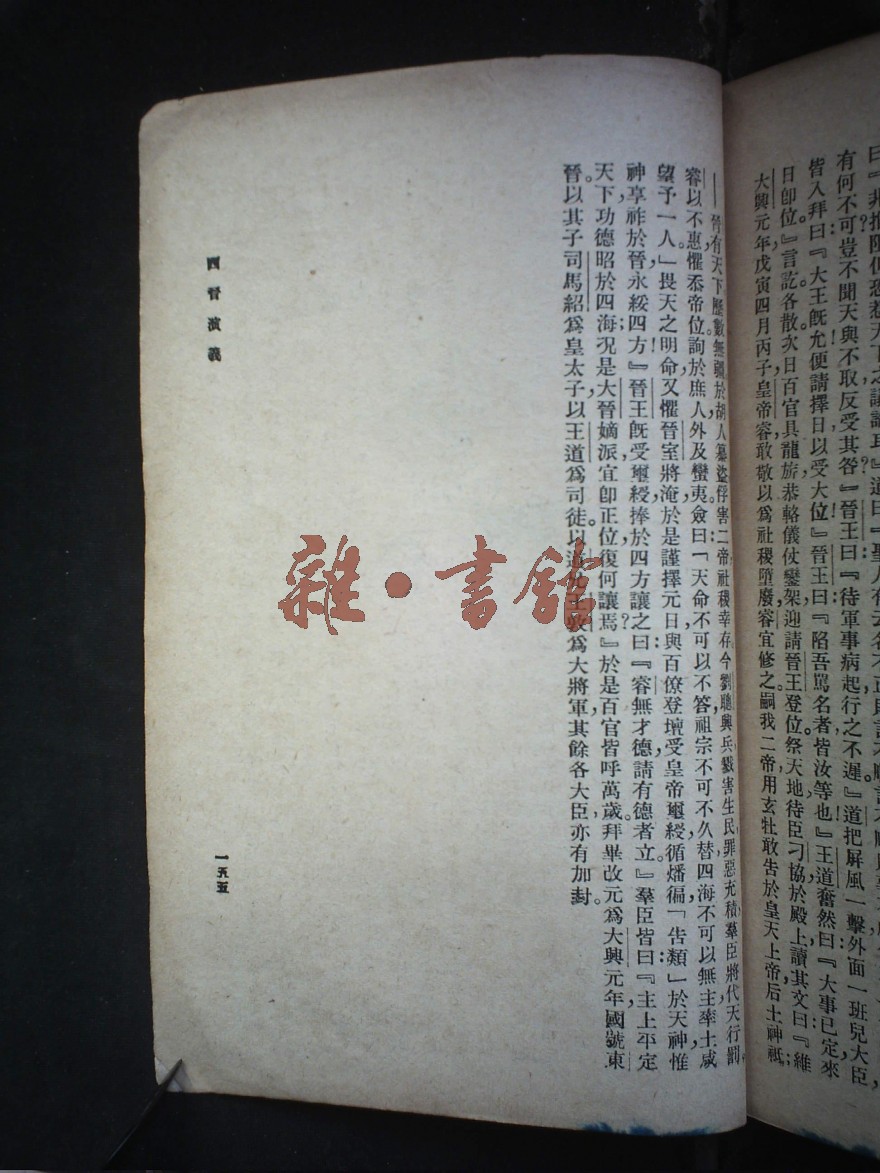 有何不可豈不聞天與不取反受其咎』晉王曰『待軍事病起行之不遲』道把屏風一擊外面一班兒大臣
皆入拜曰『大王旣允便請擇日以受大位』晉王曰『陷吾罵名者皆汝等也』王道奮然曰『大事已定來
日卽位』言訖各散次日百官具龍旂恭輅儀仗鑾架迎請晉王登位祭天地待臣刁協於殿上讀其文曰『維
大興元年戊寅四月丙子皇帝睿敢敬以爲社稷墮廢睿宜修之嗣我二帝用玄牡敢告於皇天上帝后土神祇
——晉有天下歷數無疆於胡人纂盜俘害二帝社稷幸存今劉聰興兵戮害生民罪惡充積羣臣將代天行罰
睿以不惠懼忝帝位詢於庶人外及蠻夷僉曰「天命不可以不答祖宗不可不久替四海不可以無主率土咸
望予一人」畏天之明命又懼晉室將淹於是謹擇元日與百僚登壇受皇帝璽綬循燔徧「告類」於天神惟
神享祚於晉永綏四方』晉王旣受璽綬捧於四方讓之曰『睿無才德請有德者立』羣臣皆曰『主上平定
天下功德昭於四海況是大晉嫡派宜卽正位復何讓焉』於是百官皆呼萬歲拜畢改元爲大興元年國號東
晉以其子司馬紹爲皇太子以王道爲司徒以道兄王敦爲大將軍其餘各大臣亦有加封。
西晉演義
一五五
雜·書館